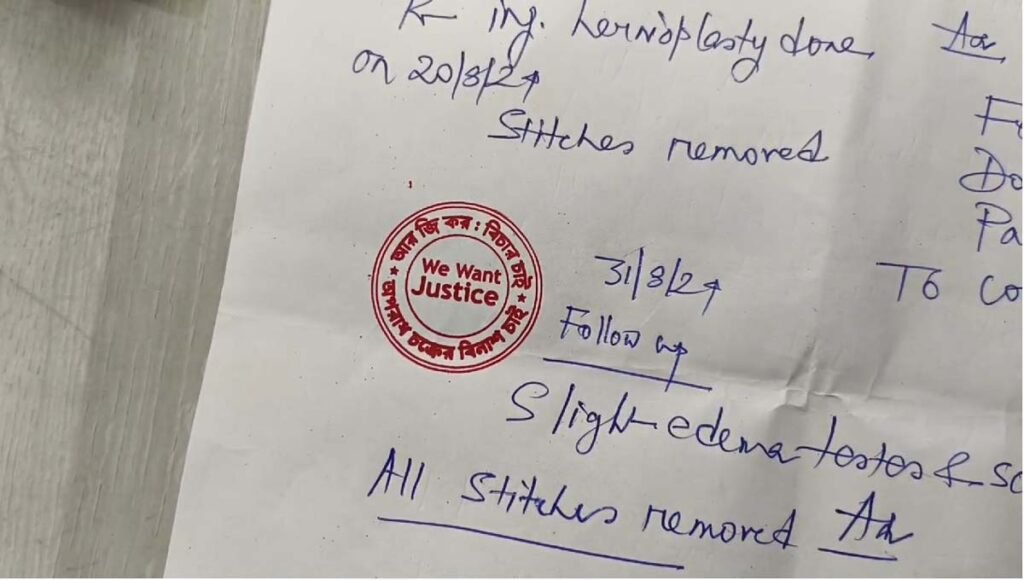 ing. hernioplasty done,
on 20/8/24
Stitches removed
আর জি কর : বিচার চাই
We Want
Justice
অপরাধ চক্রের বিনাশ চাই
31/8/24
Follow up
Slight edema testes &
All Stitches removed
Do
Pa
To co